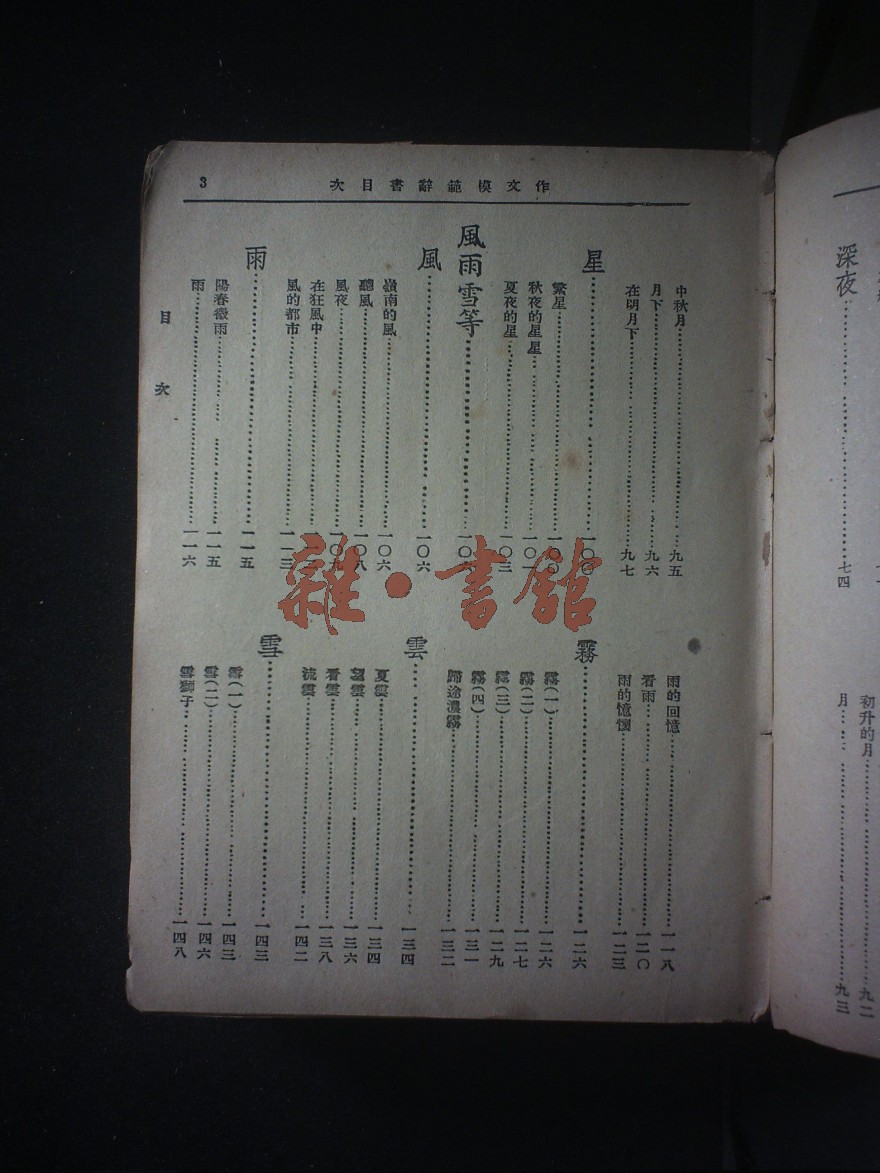 作文模範辭書目次
3
中秋月 九五
月下 九六
在明月下 九七
星 一〇〇
繁星 一〇〇
秋夜的星星 一〇一
夏夜的星 一〇三
風雨雪等 一〇六
風 一〇六
嶺南的風 一〇六
聽風 一〇八
風夜 一〇九
在狂風中
風的都市 一一三
雨 一一五
陽春微雨 一一五
雨 一一六
雨的回憶 一一八
看雨 一二〇
雨的憶懷 一二三
霧 一二六
霧(一) 一二六
霧(二) 一二七
霧(三) 一二九
霧(四) 一三一
歸途濃霧 一三二
雲 一三四
夏雲 一三四
望雲 一三六
看雲 一三八
流雲 一四二
雪 一四三
雪(一) 一四三
雪(二) 一四六
雪獅子 一四八
目次
深夜 七四
初升的月 九二
月 九三
雜·書館